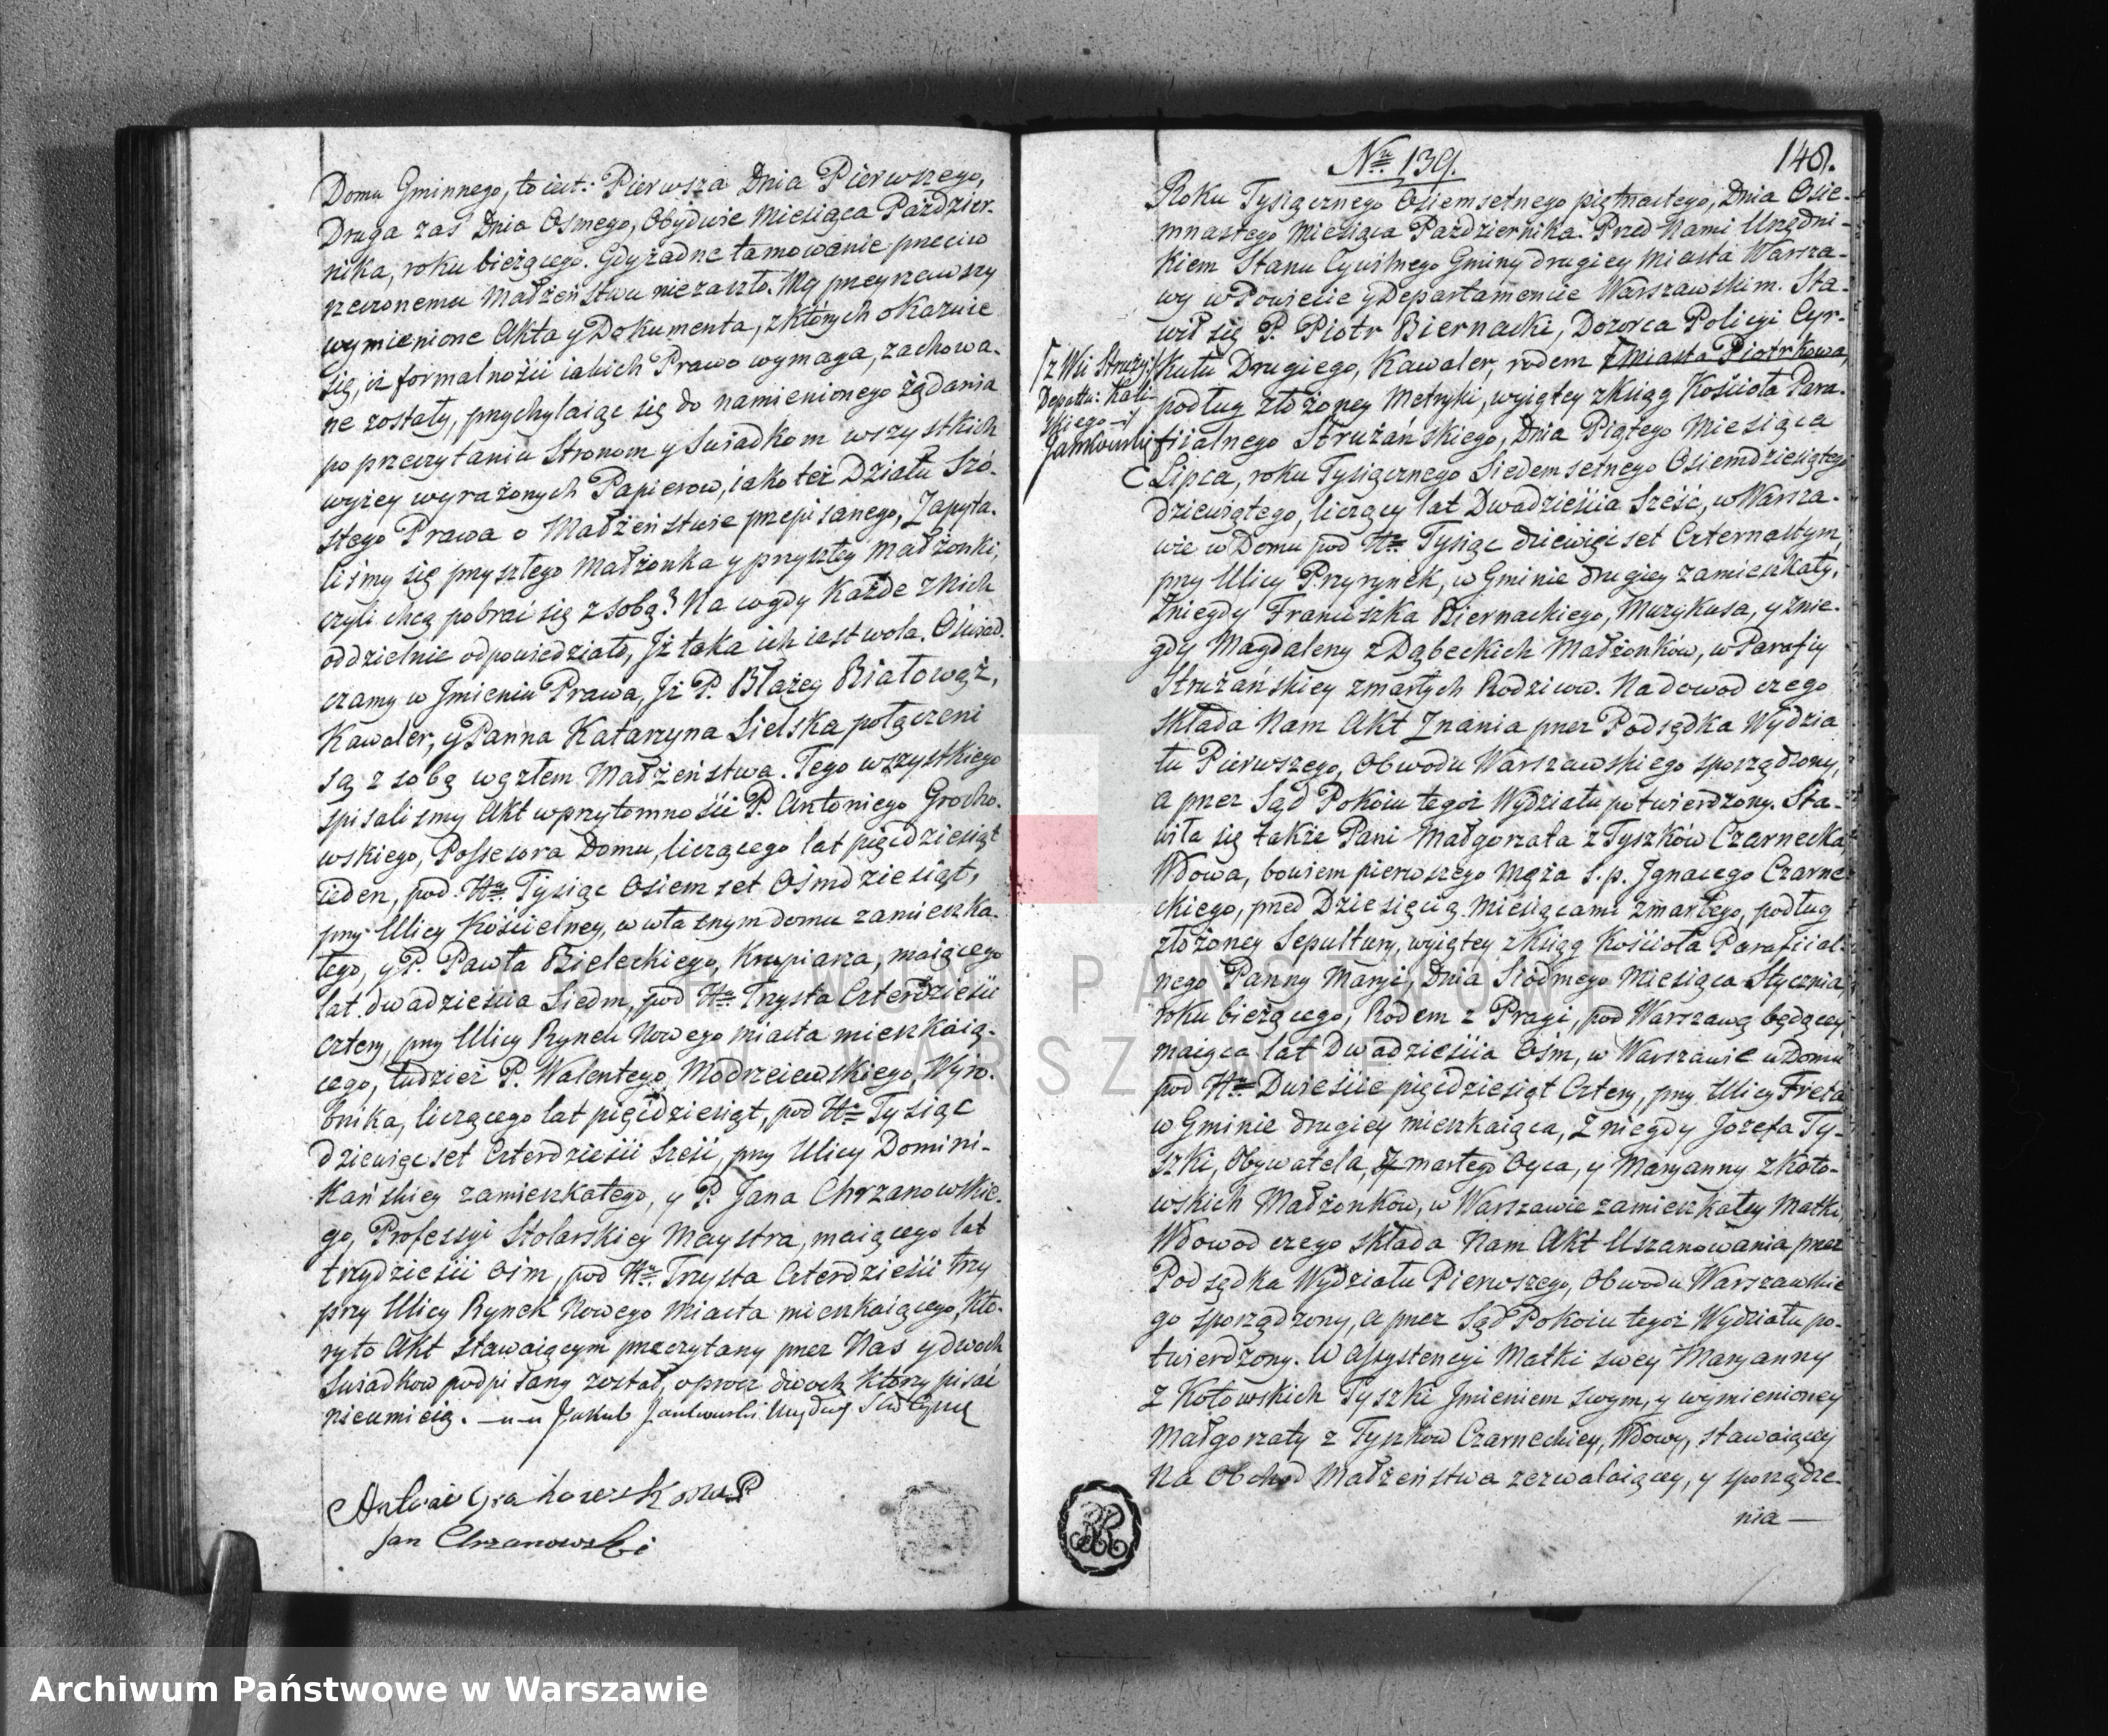 Domu Gminnego, to iest: Pierwsza Dnia Pierwszego,
Druga zaś Dnia Osmego, Obydwie Miesiąca Paździer-
nika, roku bieżącego. Gdy żadne tamowanie przeciw
rzeczonemu Małżeństwu niezaszło. My przeyrzawszy
wymienione Akta y Dokumenta, z których okazuie
się, iż formalności iakich Prawo wymaga, zachowa-
ne zostały, przychylaiąc się do namienionego żądania
po przeczytaniu Stronom y Swiadkom wszystkich
wyżey wyrażonych Papierow, iako też Działu Szó-
stego Prawa o Małżeństwie przepisanego, Zapyta-
liśmy się przyszłego Małżonka y przyszłey Małżonki,
czyli chcą pobrać się z sobą? Na co gdy Każde z Nich
oddzielnie odpowiedziało, Iż taka ich iest wola. Oświad-
czamy w Jmieniu Prawa, Iż P. Błażey Białowąż,
Kawaler, y Panna Katarzyna Sielska połączeni
są z sobą węzłem Małżeństwa. Tego wszystkiego
spisaliśmy Akt w przytomności P. Antoniego Grocho-
wskiego, Possessora Domu, liczącego lat pięćdziesiąt
ieden, pod Nrem Tysiąc Osiemset Ośmdziesiąt,
przy Ulicy Kościelney, w własnym domu zamieszka-
łego, y P. Pawła Bieleckiego, Krupiarza, maiącego
lat dwadzieścia Siedm, pod Nrem Trzysta Czterdzieści
cztery, przy Ulicy Rynek Nowego Miasta mieszkaią-
cego, tudzież P. Walentego Modrzeiewskiego, Wyro-
bnika, liczącego lat pięćdziesiąt, pod Nrem Tysiąc
dziewięćset Czterdzieści sześć, przy Ulicy Domini-
kańskiey zamieszkałego, y P. Jana Chrzanowskie-
go, Professyi Stolarskiey Maystra, maiącego lat
trzydzieści ośm, pod Nrem Trzysta Czterdzieści trzy
przy Ulicy Rynek Nowego Miasta mieszkaiącego, Któ-
ryto Akt stawaiącym przeczytany przez Nas y dwoch
Swiadkow podpisany został, oprócz dwoch Którzy pisać
nieumieią. Jakub Jankowski
Jan Chrzanowski
Nro 139.
148.
Roku Tysiącznego Osiemsetnego piętnastego, Dnia Osie-
mnastego Miesiąca Października. Przed Nami Urzędni-
kiem Stanu Cywilnego Gminy drugiey Miasta Warsza-
wy w Powiecie y Departamencie Warszawskim. Sta-
wił się P. Piotr Biernacki, Dozorca Policyi Cyr-
kułu Drugiego, Kawaler, rodem z Miasta Piotrkowa,
z Wsi Struży
Departu: Kali-
skiego
Jankowski
podług złożoney Metryki, wyiętey z Ksiąg Kościoła Para-
fiialnego Strużańskiego, Dnia Piątego Miesiąca
Lipca, roku Tysiącznego Siedemsetnego Osiemdziesiątego
dziewiątego, liczący lat Dwadzieścia Sześć, w Warsza-
wie w Domu pod Nrem Tysiąc dziewięćset Czternastym,
przy Ulicy Przyrynek, w Gminie drugiey zamieszkały,
z niegdy Franciszka Biernackiego, Muzykusa, y z nie-
gdy Magdaleny z Dąbeckich Małżonków, w Parafiy
Strużańskiey zmarłych Rodziców. Na dowod czego
składa Nam Akt Znania przez Podsędka Wydzia
łu Pierwszego, Obwodu Warszawskiego sporządzony,
a przez Sąd Pokoiu tegoż Wydziału potwierdzony. Sta-
wiła się także Pani Małgorzata z Tyszków Czarnecka
Wdowa, bowiem pierwszego Męża ś.p. Jgnacego Czarne-
ckiego, przed Dziesięcią Miesiącami zmarłego, podług
złożoney Sepultury, wyiętey z Ksiąg Kościoła Parafiial-
nego Panny Maryi, Dnia Siódmego Miesiąca Stycznia,
roku bieżącego, Rodem z Pragi, pod Warszawą będącey,
maiąca lat Dwadzieścia Ośm, w Warszawie w Domu
pod Nrem Dwieście pięćdziesiąt Cztery, przy Ulicy Freta
w Gminie drugiey mieszkaiąca, Z niegdy Jozefa Ty-
szki, Obywatela, Zmarłego Oyca, y Maryanny z Koto-
wskich Małżonków, w Warszawie zamieszkałey Matki,
Wdowod czego składa Nam Akt Uszanowania przez
Podsędka Wydziału Pierwszego, Obwodu Warszawskie
go sporządzony, a przez Sąd Pokoiu tegoż Wydziału po-
twierdzony. W Assystencyi Matki swey Maryanny
z Kotowskich Tyszki Jmieniem swym, y wymienioney
Małgorzaty z Tyszkow Czarneckiey, Wdowy, stawaiącey
Na Obchod Małżeństwa zezwalaiącey, y sporządze-
nia —
ARCHIWUM PAŃSTWOWE
W WARSZAWIE
Archiwum Państwowe w Warszawie